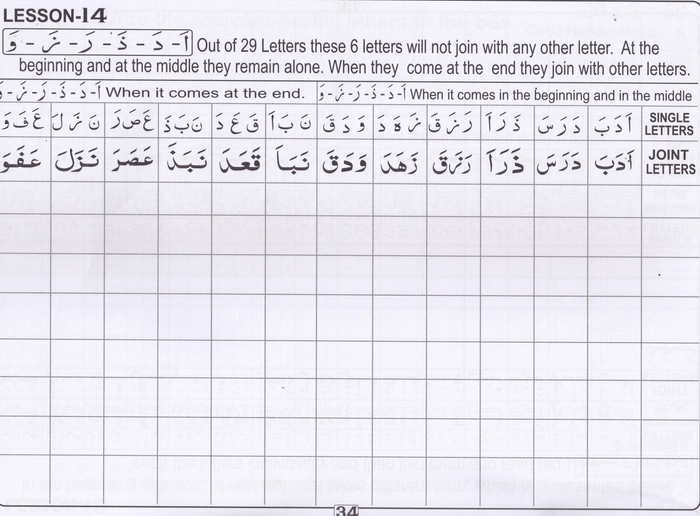 LESSON-14
اَ - دَ - ذَ - رَ - زَ - وَ Out of 29 Letters these 6 letters will not join with any other letter. At the
beginning and at the middle they remain alone. When they come at the end they join with other letters.
اَ-دَ-ذَ-رَ-زَ-وَ When it comes at the end. اَ-دَ-ذَ-رَ-زَ-وَ When it comes in the beginning and in the middle
SINGLE LETTERS اَ دَ بَ دَ رَ سَ ذَ رَ اَ رَ زَ قَ زَ هَ دَ وَ دَ قَ نَ بَ اَ قَ عَ دَ نَ بَ ذَ عَ صَ رَ نَ زَ لَ عَ فَ وَ
JOINT LETTERS اَدَبَ دَرَسَ ذَرَاَ رَزَقَ زَهَدَ وَدَقَ نَبَاَ قَعَدَ نَبَذَ عَصَرَ نَزَلَ عَفَوَ
34